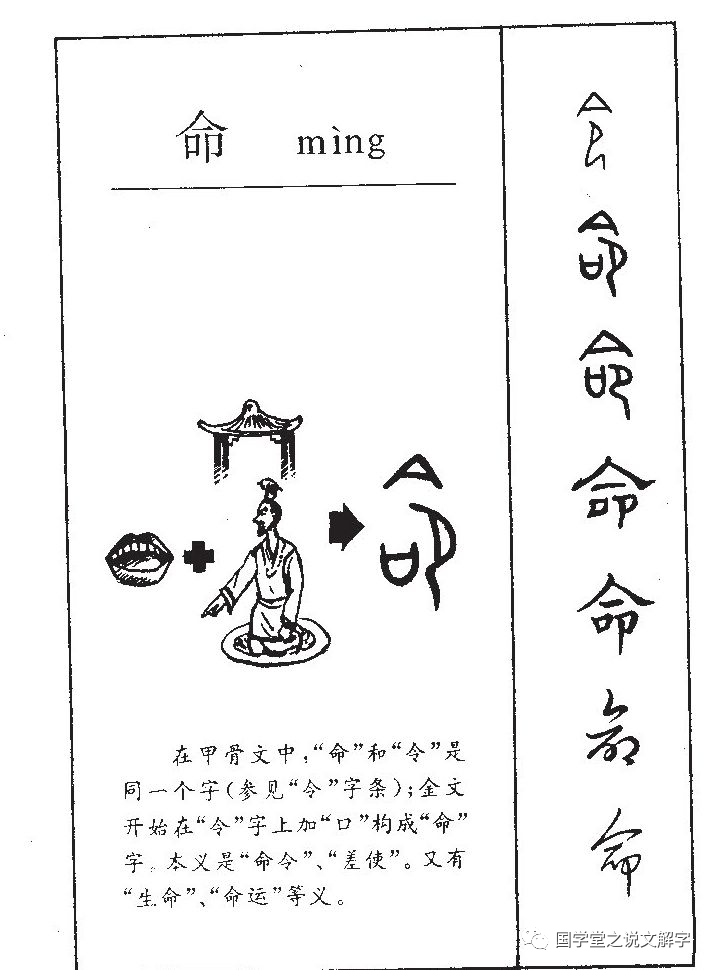 命 mìng
在甲骨文中，“命”和“令”是
同一个字（参见“令”字条）；金文
开始在“令”字上加“口”构成“命”
字。本义是“命令”、“差使”。又有
“生命”、“命运”等义。
命
命
命
命
命
命
命
命
国学堂之说文解字